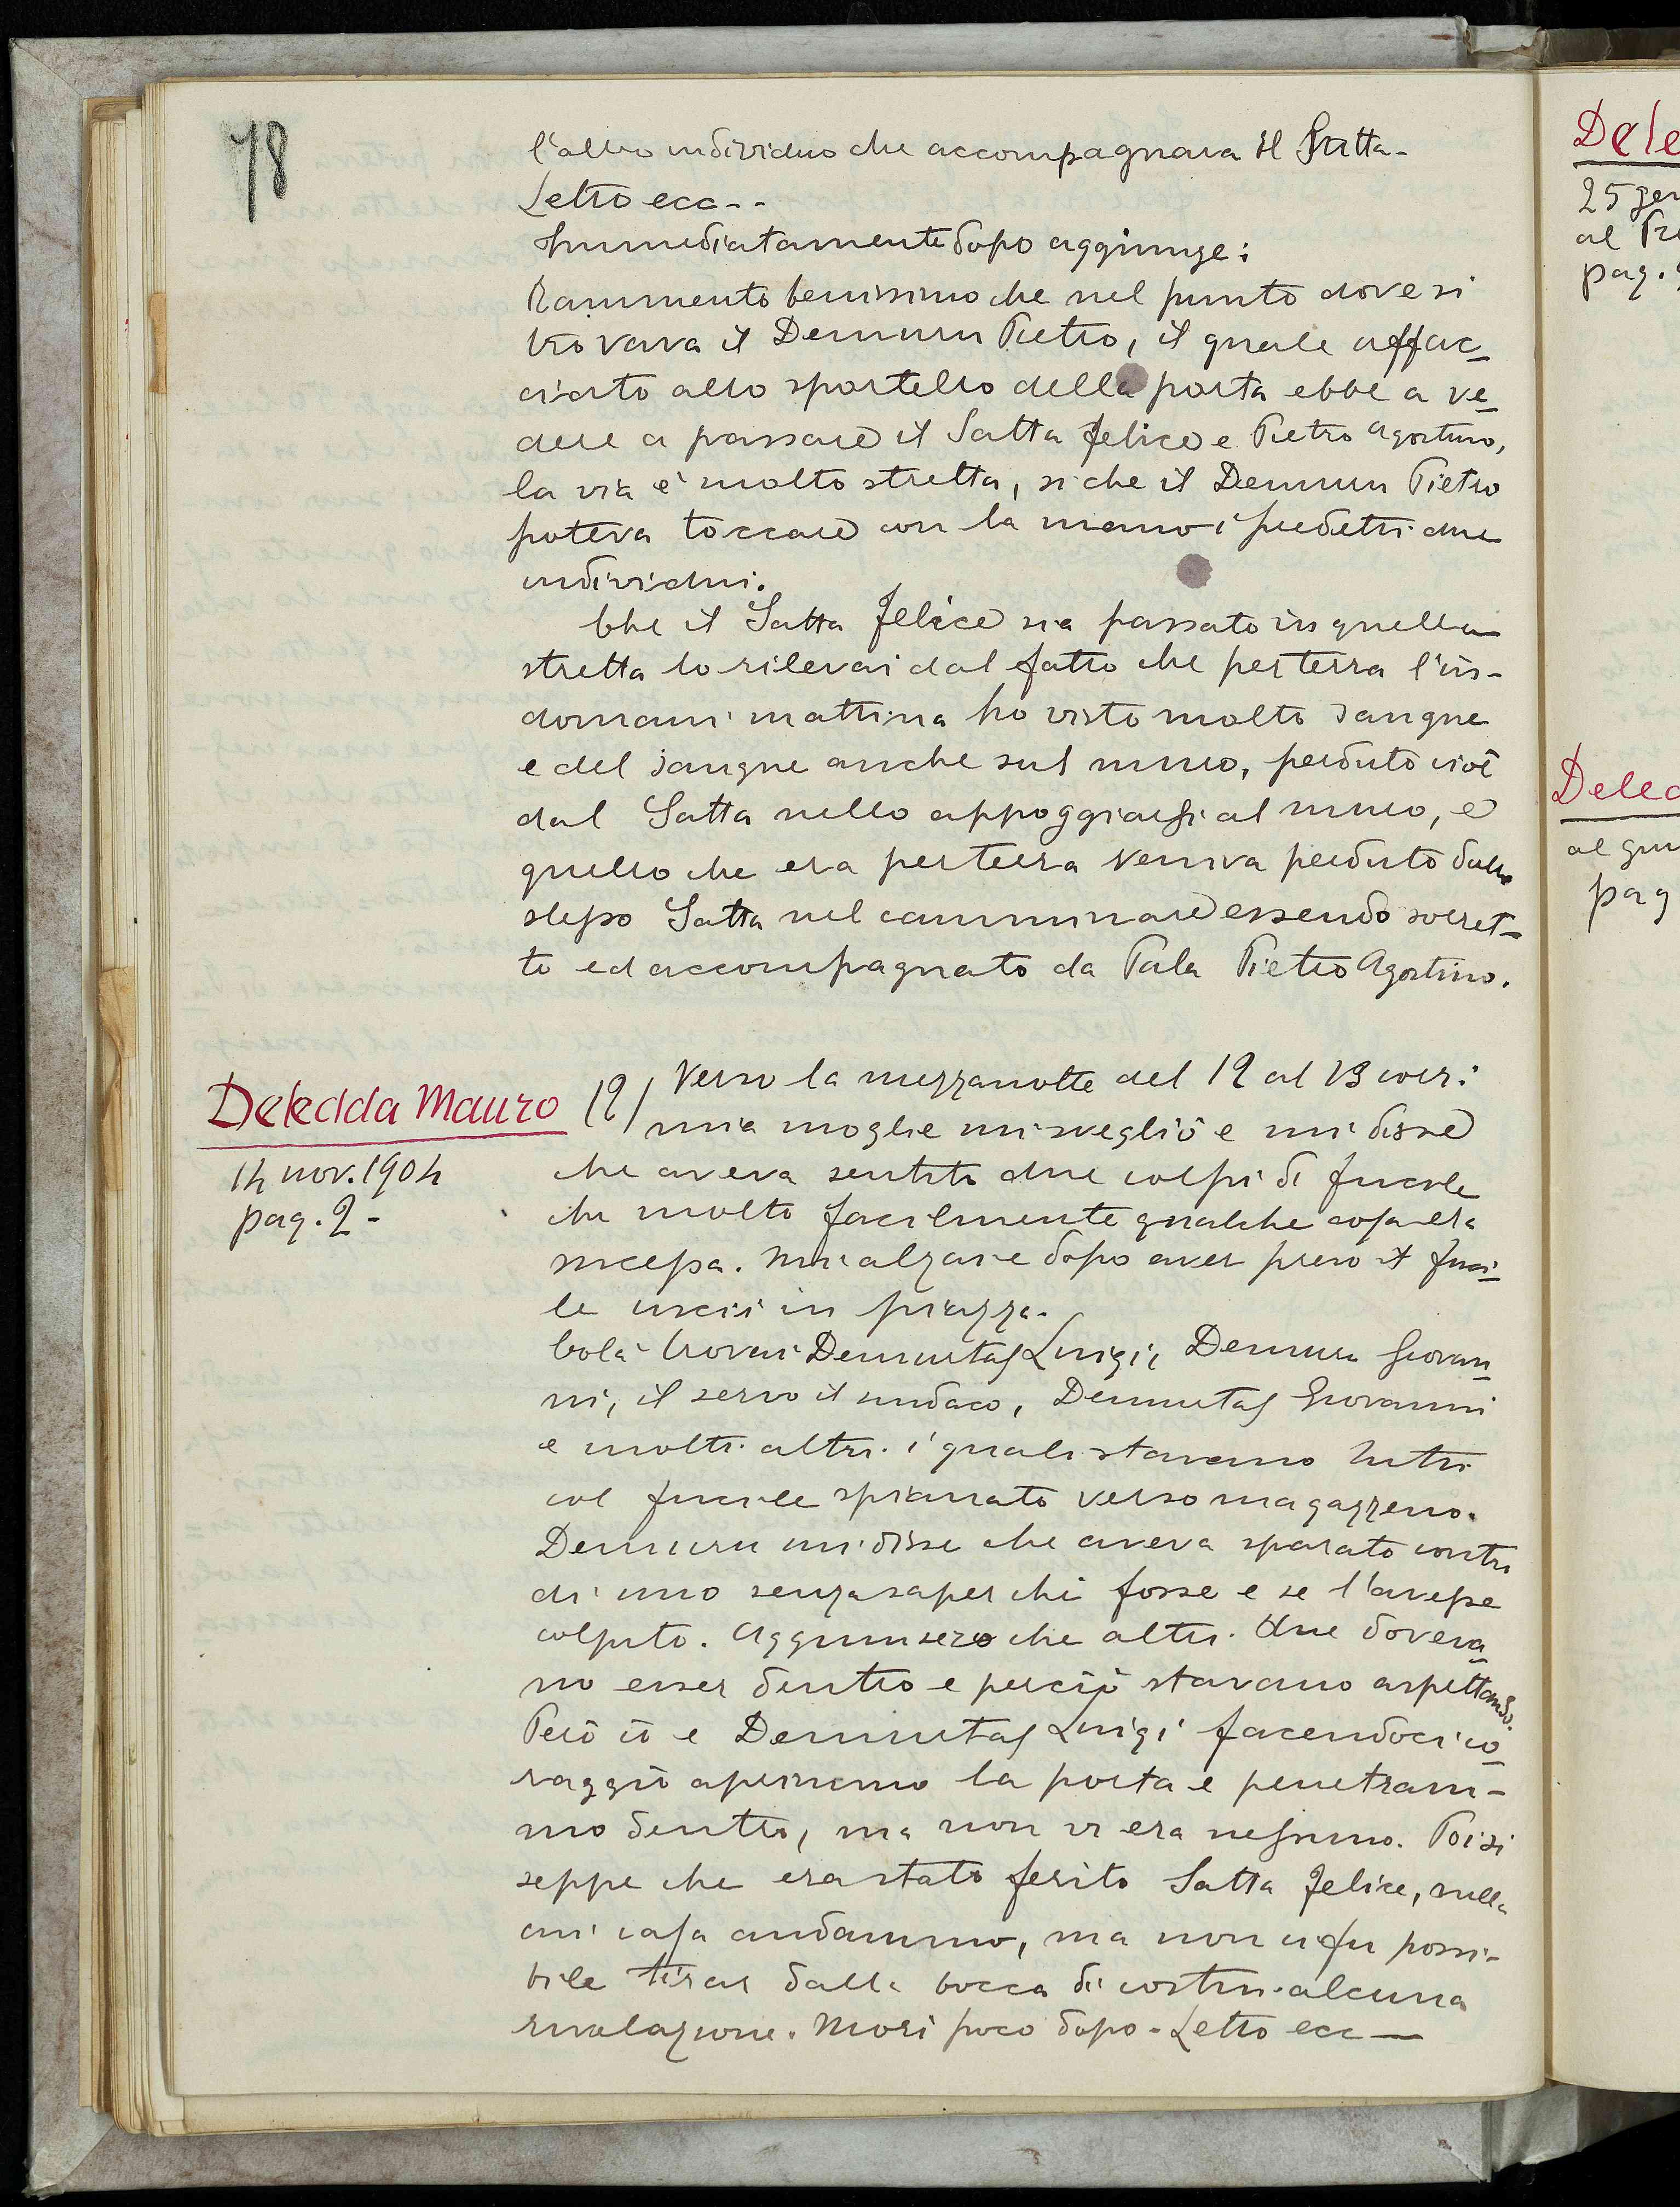 78
l'altro individuo che accompagnava il Satta-
Letto ecc--
Immediatamente dopo aggiunge:
Rammento benissimo che nel punto dove si
trovava il Demuru Pietro, il quale affac-
ciato allo sportello della porta ebbe a ve-
dere a passare il Satta Felice e Pietro Agostino,
la via è molto stretta, siche il Demuru Pietro
poteva toccare con la mano i predetti due
individui.
Che il Satta Felice sia passato in quella
stretta lo rilevai dal fatto che per terra l'in-
domani mattina ho visto molto sangue
e del sangue anche sul muro, perduto cioè
dal Satta nello appoggiarsi al muro, e
quello che era per terra veniva perduto dallo
stesso Satta nel camminare essendo sorret-
to ed accompagnato da Pala Pietro Agostino.
Deledda Mauro
14 nov. 1904
pag. 2-
12/ Verso la mezzanotte del 12 al 13 corr:
mia moglie mi svegliò e mi disse
che aveva sentito due colpi di fucile
che molto facilmente qualche cosa era
successa. Mi alzai e dopo aver preso il fuci-
le uscii in piazza.
Colà trovai Demurtas Luigi, Demuru Giovan-
ni, il servo il sindaco, Demurtas Giovanni
e molti altri i quali stavano tutti
col fucile spianato verso magazzeno.
Demuru mi disse che aveva sparato contro
di uno senza saper chi fosse e se l'avesse
colpito. Aggiunsero che altri due doveva-
no esser dentro e perciò stavano aspettando.
Però io e Demurtas Luigi facendoci co-
raggio aprimmo la porta e penetram-
mo dentro, ma non vi era nessuno. Poi si
seppe che era stato ferito Satta Felice, nella
cui casa andammo, ma non ci fu possi-
bile tirar dalla bocca di costui alcuna
rivelazione. Morì poco dopo-Letto ecc—
Dele
25 gen
al Pre
pag.
Deled
al giu
pag